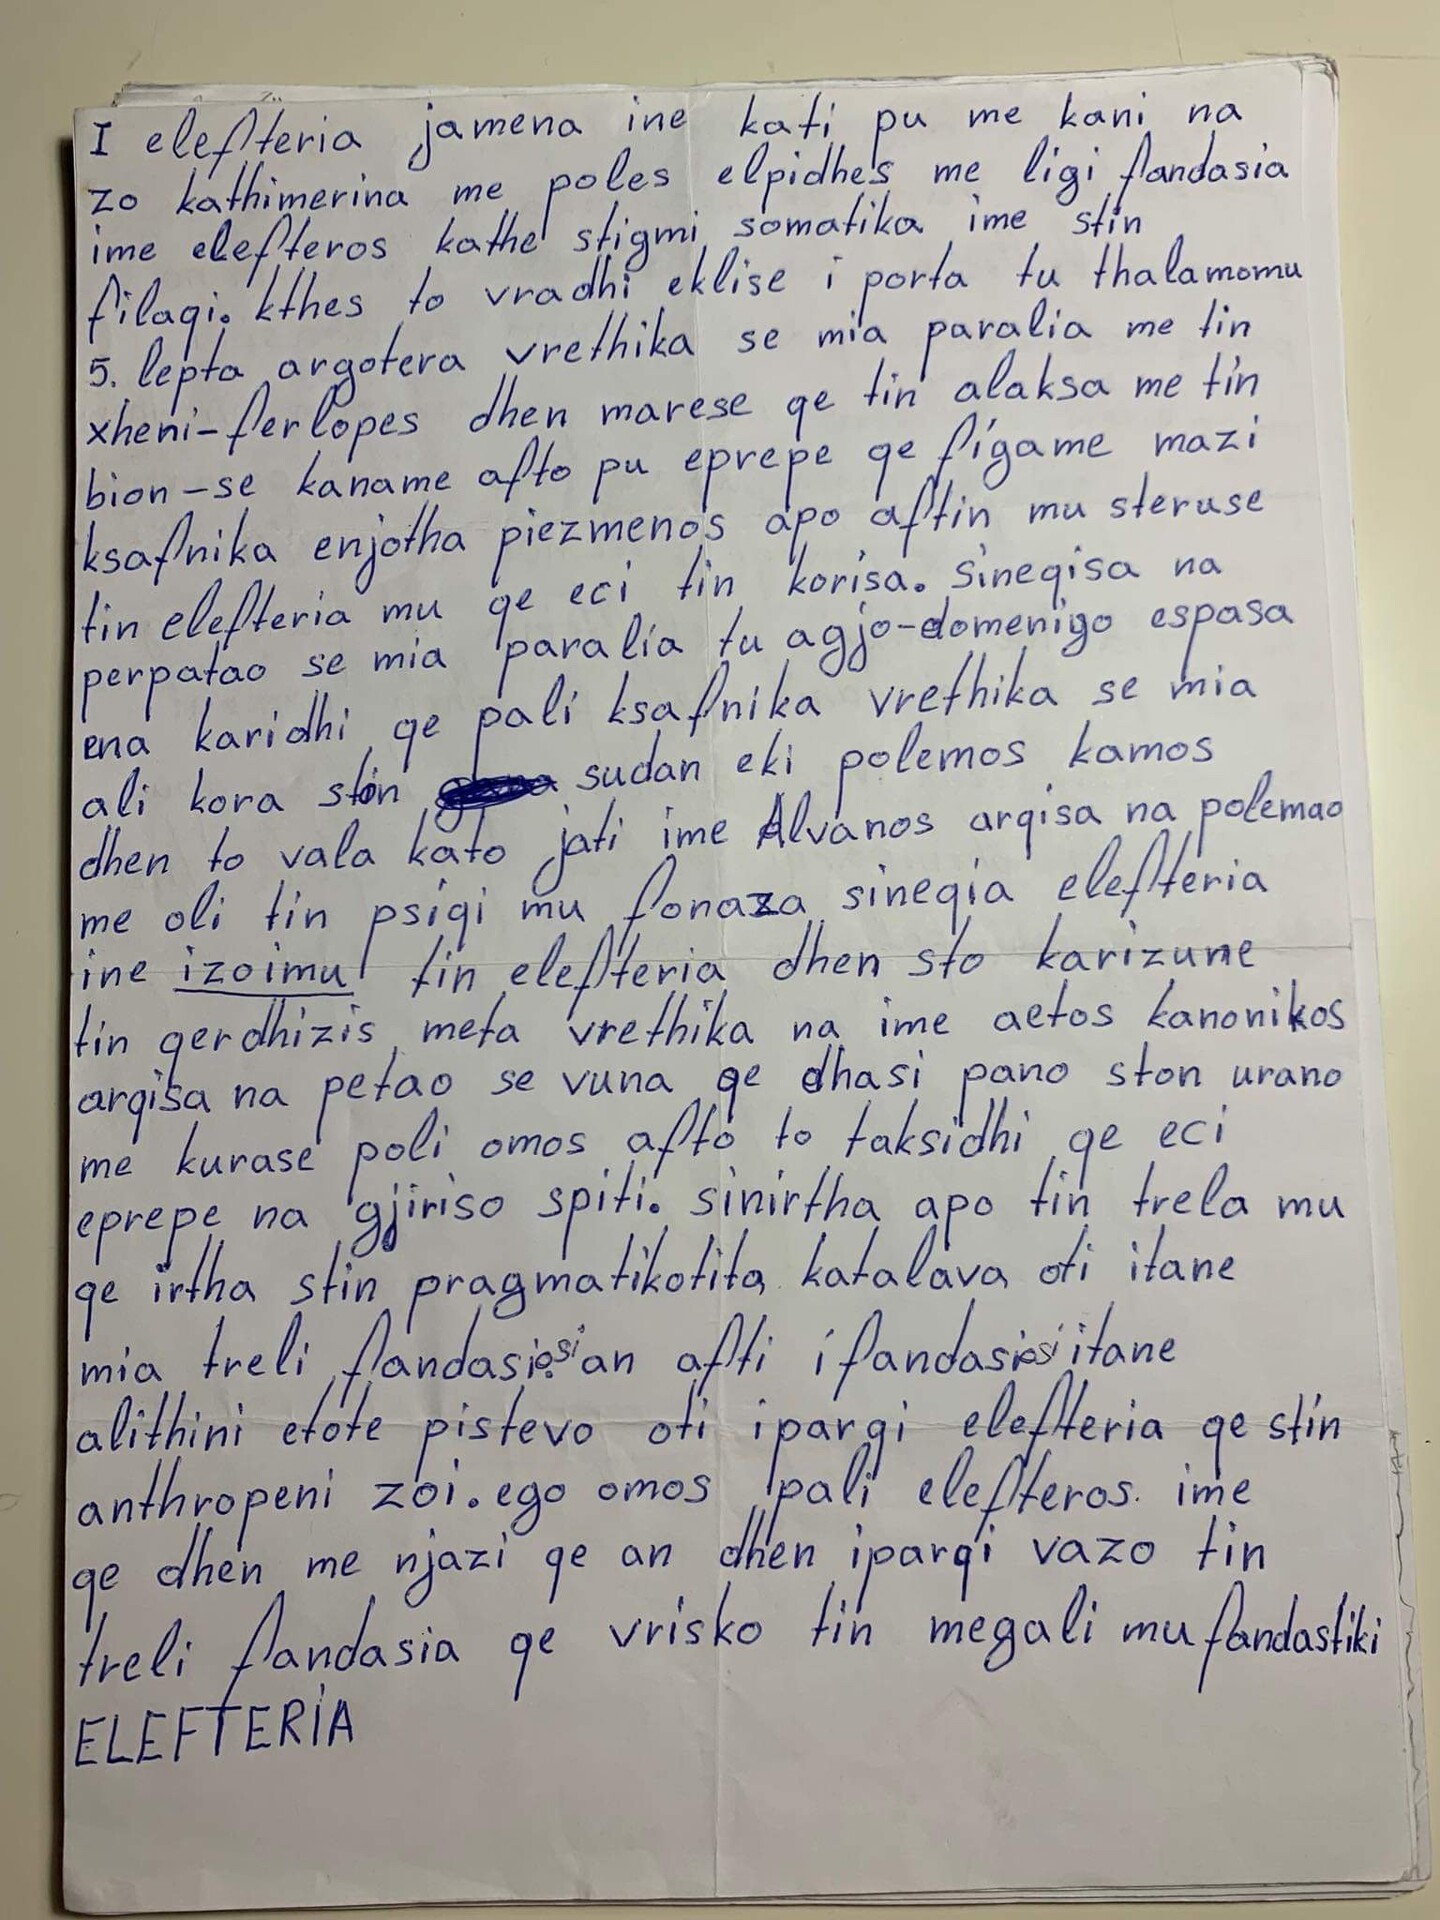 I elefteria jamena ine kati pu me kani na
zo kathimerina me poles elpidhes me ligi fandasia
ime elefteros kathe stigmi somatika ime stin
filaqi. kthes to vradhi eklise i porta tu thalamomu
5. lepta argotera vrethika se mia paralia me tin
xheni-ferlopes dhen marese qe tin alaksa me tin
bion-se kaname afto pu eprepe qe fígame mazi
ksafnika enjotha piezmenos apo aftin mu steruse
tin elefteria mu qe eci tin korisa. sineqisa na
perpatao se mia paralia tu agjo-domenigo espasa
ena karidhi qe pali ksafnika vrethika se mia
ali kora stin sudan eki polemos kamos
dhen to vala kato jati ime Alvanos arqisa na polemao
me oli tin psiqi mu fonaza sineqia elefteria
ine izoimu tin elefteria dhen sto karizune
tin qerdhizis meta vrethika na ime aetos kanonikos
arqisa na petao se vuna qe dhasi pano ston urano
me kurase poli omos afto to taksidhi qe eci
eprepe na gjiriso spiti. sinirtha apo tin trela mu
qe irtha stin pragmatikotita katalava oti itane
mia treli fandasiosi an afti i fandasiosi itane
alithini etote pistevo oti ipargi elefteria qe stin
anthropeni zoi. ego omos pali elefteros ime
qe dhen me njazi qe an dhen iparqi vazo tin
treli fandasia qe vrisko tin megali mu fandastiki
ELEFTERIA